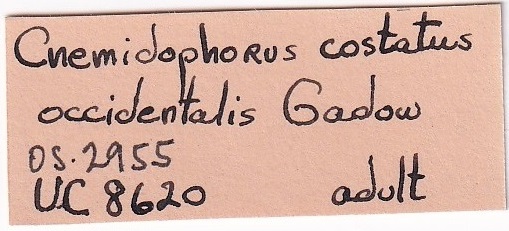 Cnemidophorus costatus
occidentalis Gadow
OS.2955
UC 8620 adult